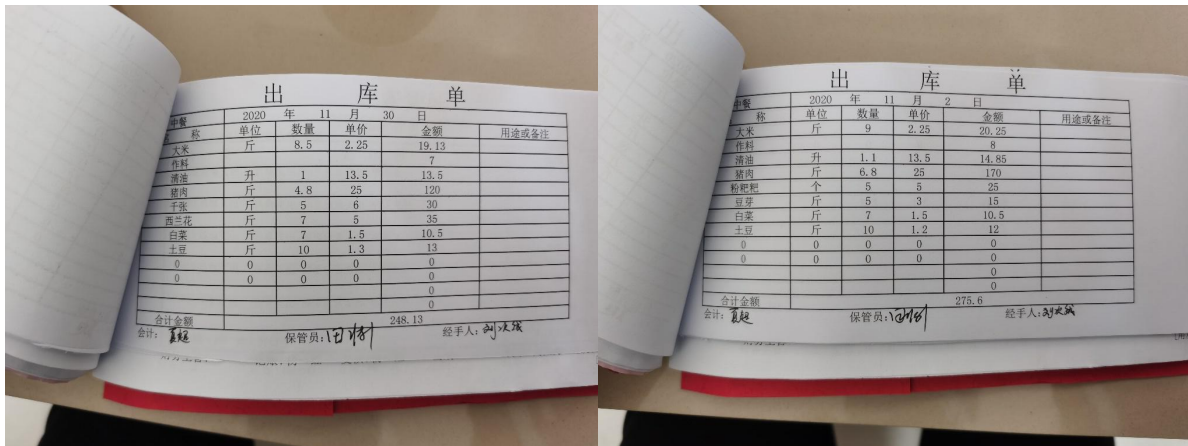 出 库 单
中餐 2020 年 11 月 30 日
称 单位 数量 单价 金额 用途或备注
大米 斤 8.5 2.25 19.13
作料 7
清油 升 1 13.5 13.5
猪肉 斤 4.8 25 120
千张 斤 5 6 30
西兰花 斤 7 5 35
白菜 斤 7 1.5 10.5
土豆 斤 10 1.3 13
0 0 0 0 0
0 0 0 0 0
0
0
合计金额 248.13
会计: 保管员: 经手人:
出 库 单
中餐 2020 年 11 月 2 日
称 单位 数量 单价 金额 用途或备注
大米 斤 9 2.25 20.25
作料 8
清油 升 1.1 13.5 14.85
猪肉 斤 6.8 25 170
粉粑粑 个 5 5 25
豆芽 斤 5 3 15
白菜 斤 7 1.5 10.5
土豆 斤 10 1.2 12
0 0 0 0 0
0 0 0 0 0
0
0
合计金额 275.6
会计: 保管员: 经手人: